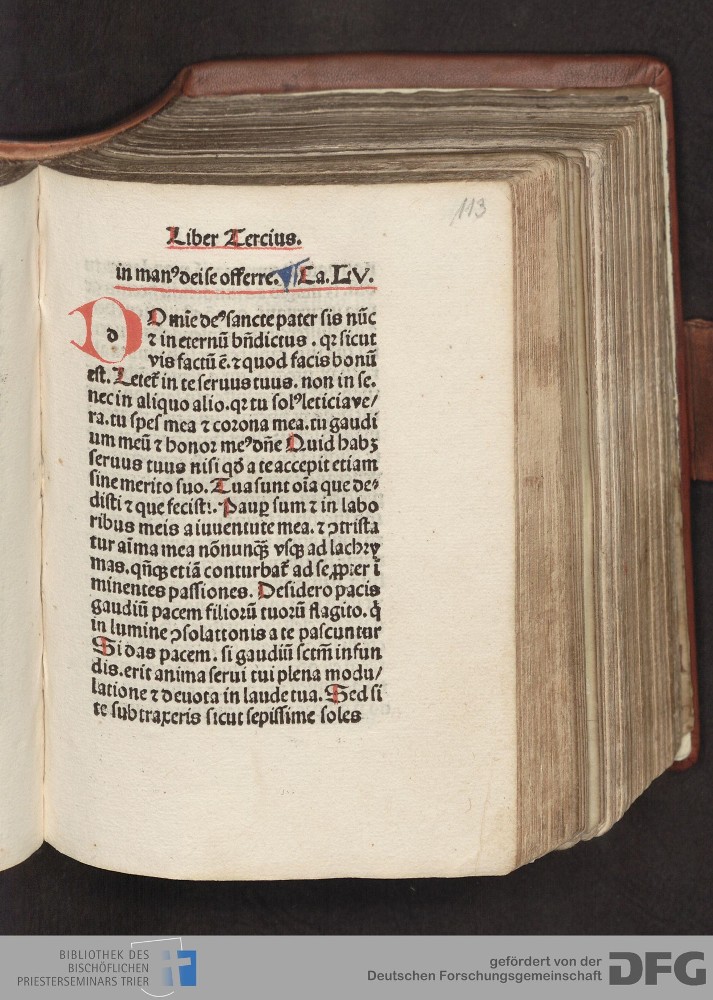 113
Liber Tercius.
in manꝰ dei se offerre. Ca. LV.
DOmīe deꝰ sancte pater sis nūc
d
⁊ in eternū bn̄dictus. qꝛ sicut
vis factū ē. ⁊ quod facis bonū
est. Letet᷑ in te seruus tuus. non in se.
nec in aliquo alio. qꝛ tu solꝰ leticia ve/
ra. tu spes mea ⁊ corona mea. tu gaudi
um meū ⁊ honor meꝰ dn̄e Quid habꝫ
seruus tuus nisi qd̓ a te accepit etiam
sine merito suo. Tua sunt oīa que de-
disti ⁊ que fecisti. Paup̲ sum ⁊ in labo
ribus meis a iuuentute mea. ⁊ ꝯtrista
tur aīma mea nōnunqꝫ̄ vsqꝫ ad lachry
mas. qn̄qꝫ etiā conturbat᷑ ad se ꝓpter ī
minentes passiones. Desidero pacis
gaudiū pacem filiorū tuorū flagito. q̇
in lumine ꝯsolationis a te pascuntur
Si das pacem. si gaudiū sctm̄ infun
dis. erit anima serui tui plena modu/
latione ⁊ deuota in laude tua. Sed si
te subtraxeris sicut sepissime soles
BIBLIOTHEK DES
BISCHÖFLICHEN
PRIESTERSEMINARS TRIER
gefördert von der
Deutschen Forschungsgemeinschaft
DFG